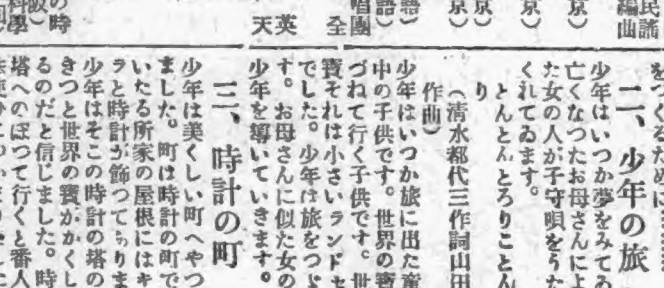 民謠
編曲
京）
京）
京）
語）
語）
唱團
全
英
天
の時
科學
をつくるために
二、少年の旅
少年はいつか夢をみてゐ
亡くなつたお母さんによ
た女の人が子守唄をうた
くれてゐます。
とんとんとろりことん
り
（清水都代三作詞山田
作曲）
少年はいつか旅に出た童
中の子供です。世界の寶
づねて行く子供です。世
寶それは小さいランドセ
でした。少年は旅をつゞ
す。お母さんに似た女の
少年を導いていきます。
三、時計の町
少年は美くしい町へやつ
ました。町は時計の町で
いたる所家の屋根にはキ
ラと時計が飾つてありま
少年はそこの時計の塔の
きつと世界の寶がかくし
るのだと信じました。時
塔へのぼつて行くと番人